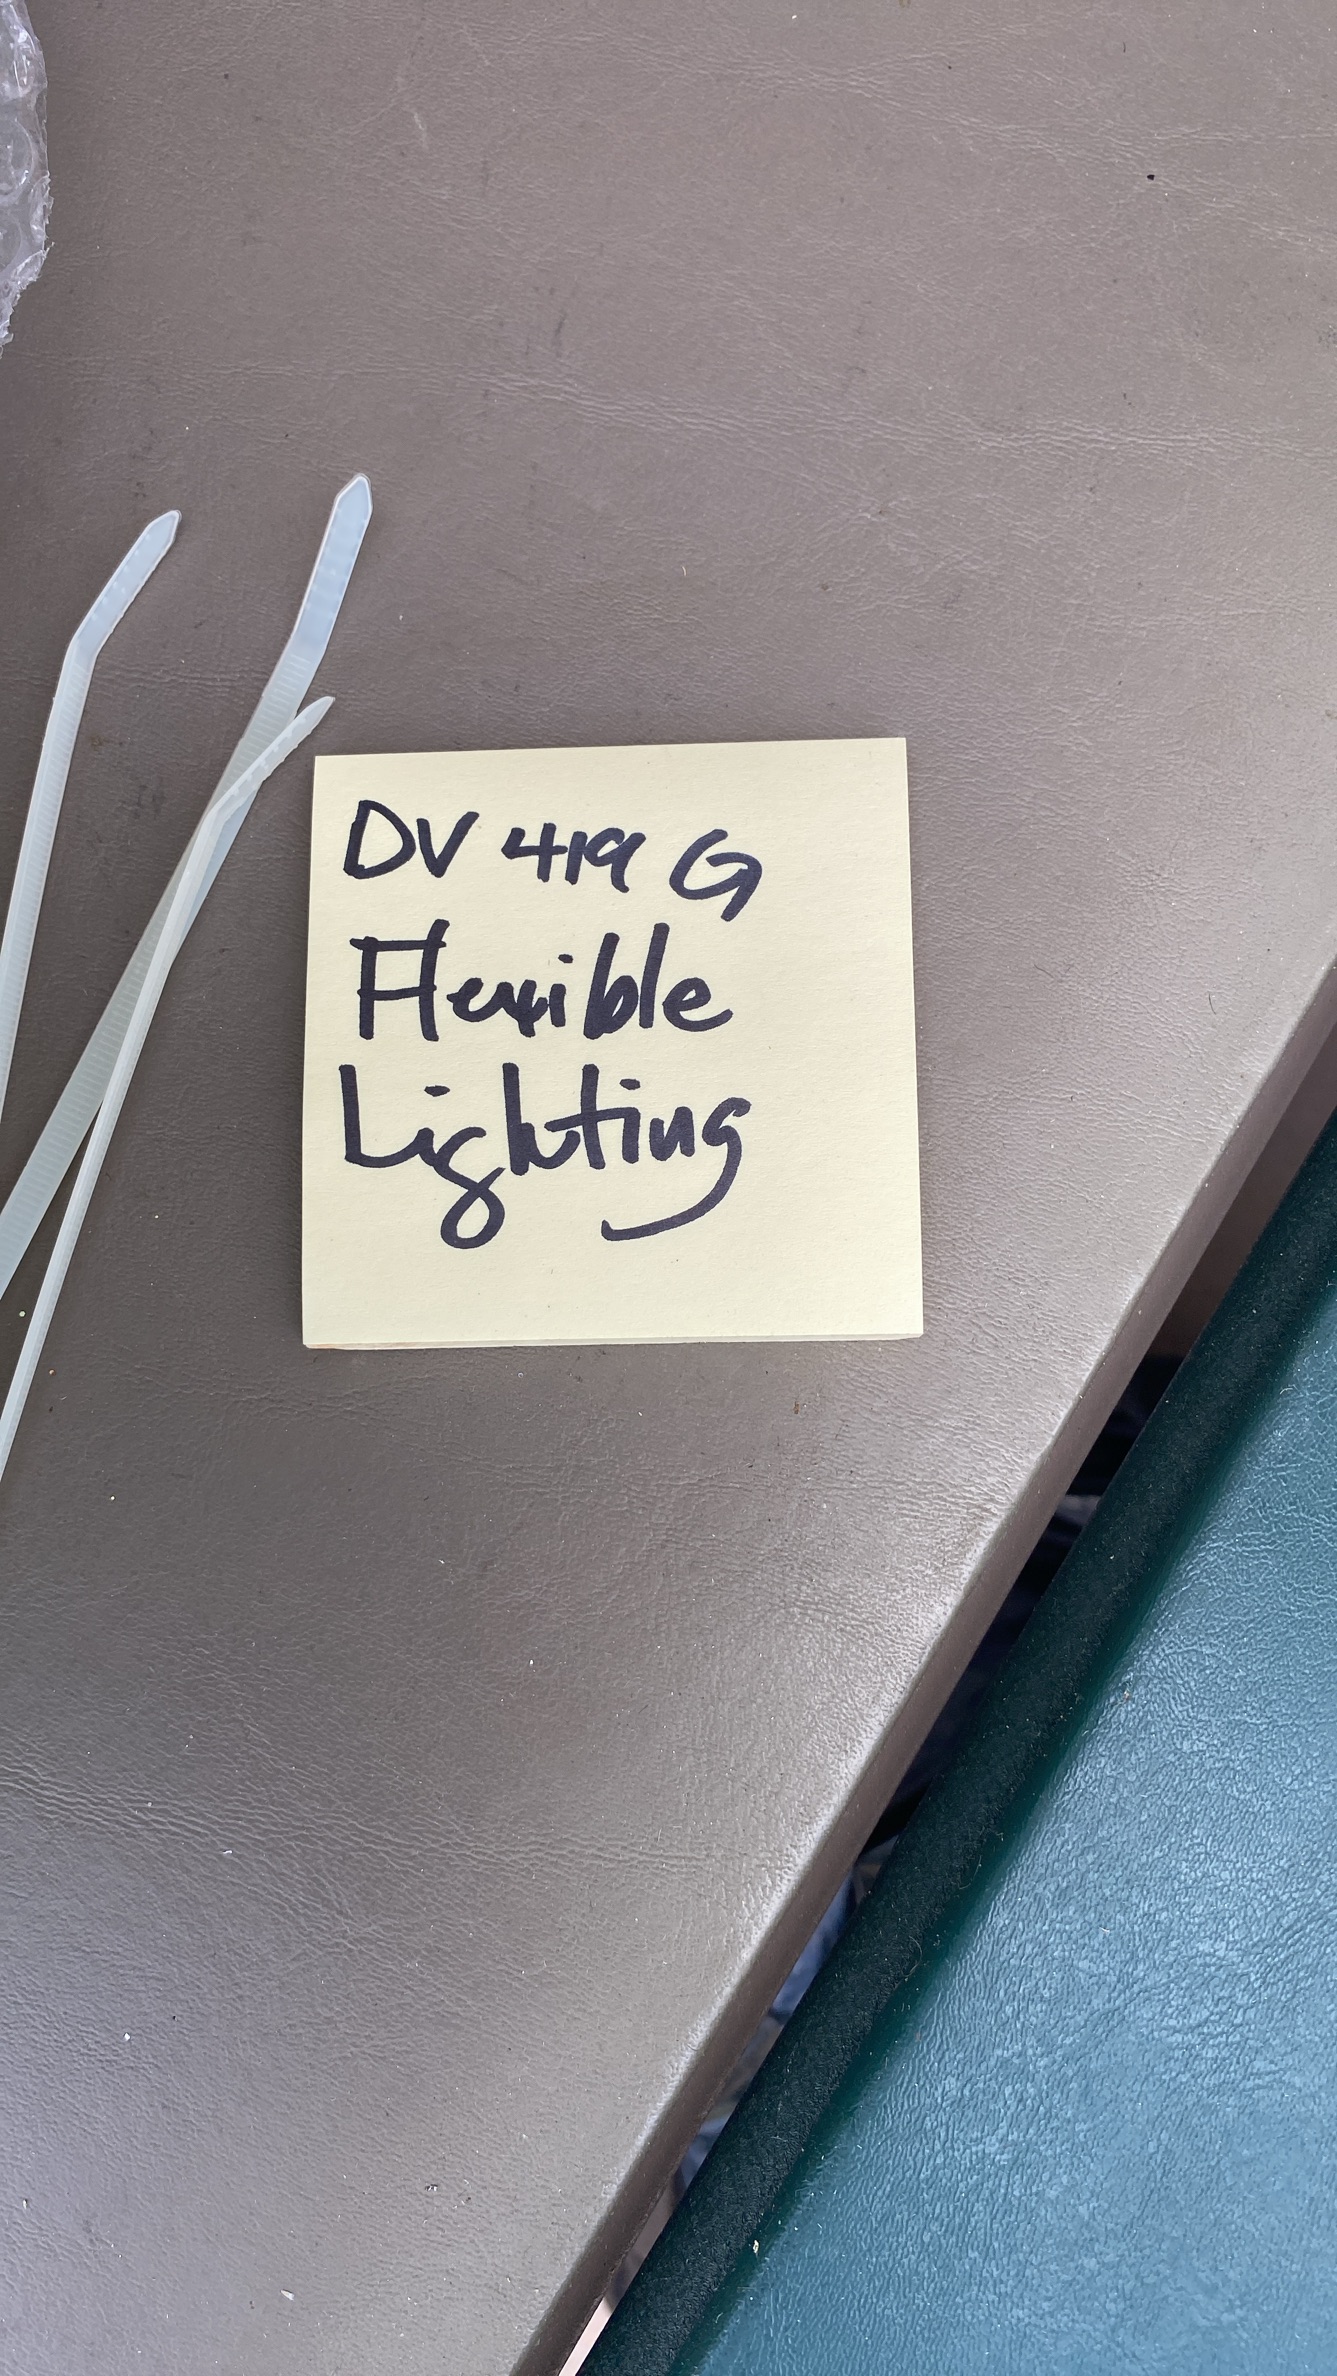 DV 419 G
Flexible
Lighting